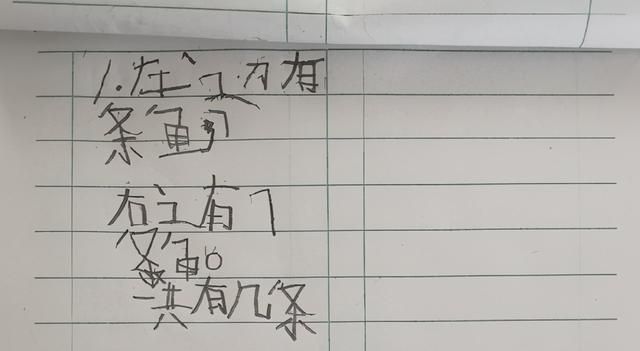 1.左江有
条鱼
右江有7
条鱼。
一共有几条